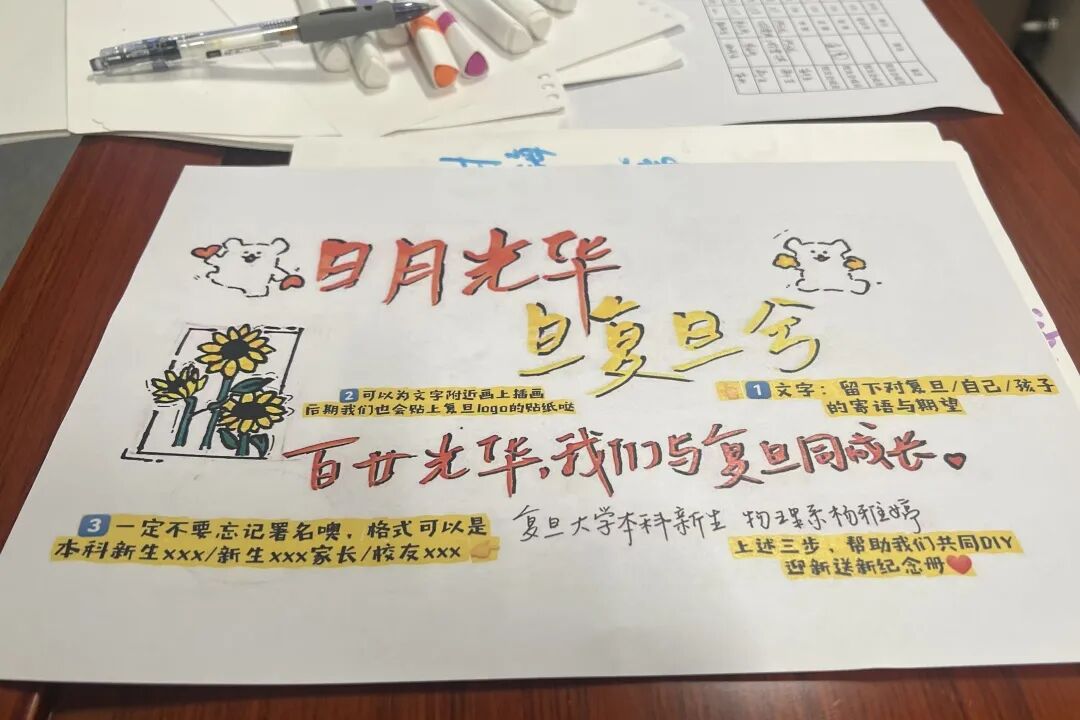 日月光华
旦复旦兮
2 可以为文字附近画上插画
后期我们也会贴上复旦logo的贴纸哒
1 文字：留下对复旦/自己/孩子
的寄语与期望
百廿光华，我们与复旦同成长。
3 一定不要忘记署名噢，格式可以是
本科新生xxx/新生xxx家长/校友xxx
复旦大学本科新生 物理系杨雅婷
上述三步，帮助我们共同DIY
迎新送新纪念册